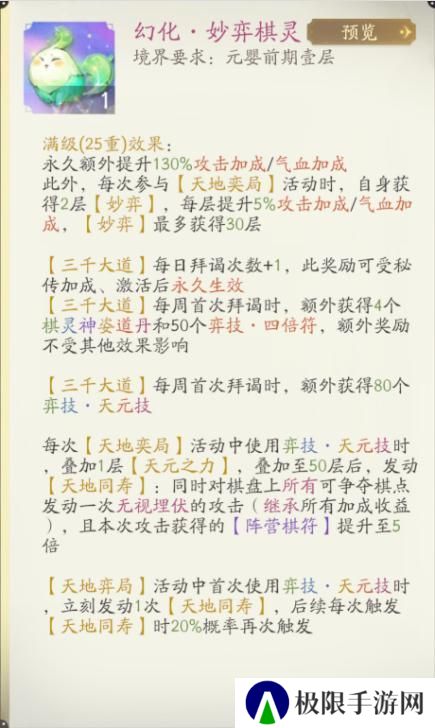 幻化·妙弈棋灵
预览
境界要求：元婴前期壹层
1
满级(25重)效果：
永久额外提升130%攻击加成/气血加成
此外，每次参与【天地奕局】活动时，自身获
得2层【妙弈】，每层提升5%攻击加成/气血加
成，【妙弈】最多获得30层
【三千大道】每日拜谒次数+1，此奖励可受秘
传加成、激活后永久生效
【三千大道】每周首次拜谒时，额外获得4个
棋灵神姿道丹和50个弈技·四倍符，额外奖励
不受其他效果影响
【三千大道】每周首次拜谒时，额外获得80个
弈技·天元技
每次【天地奕局】活动中使用弈技·天元技时
，叠加1层【天元之力】，叠加至50层后，发动
【天地同寿】：同时对棋盘上所有可争夺棋点
发动一次无视埋伏的攻击（继承所有加成收益
），且本次攻击获得的【阵营棋符】提升至5
倍
【天地弈局】活动中首次使用弈技·天元技时
，立刻发动1次【天地同寿】，后续每次触发
【天地同寿】时20%概率再次触发
极限手游网